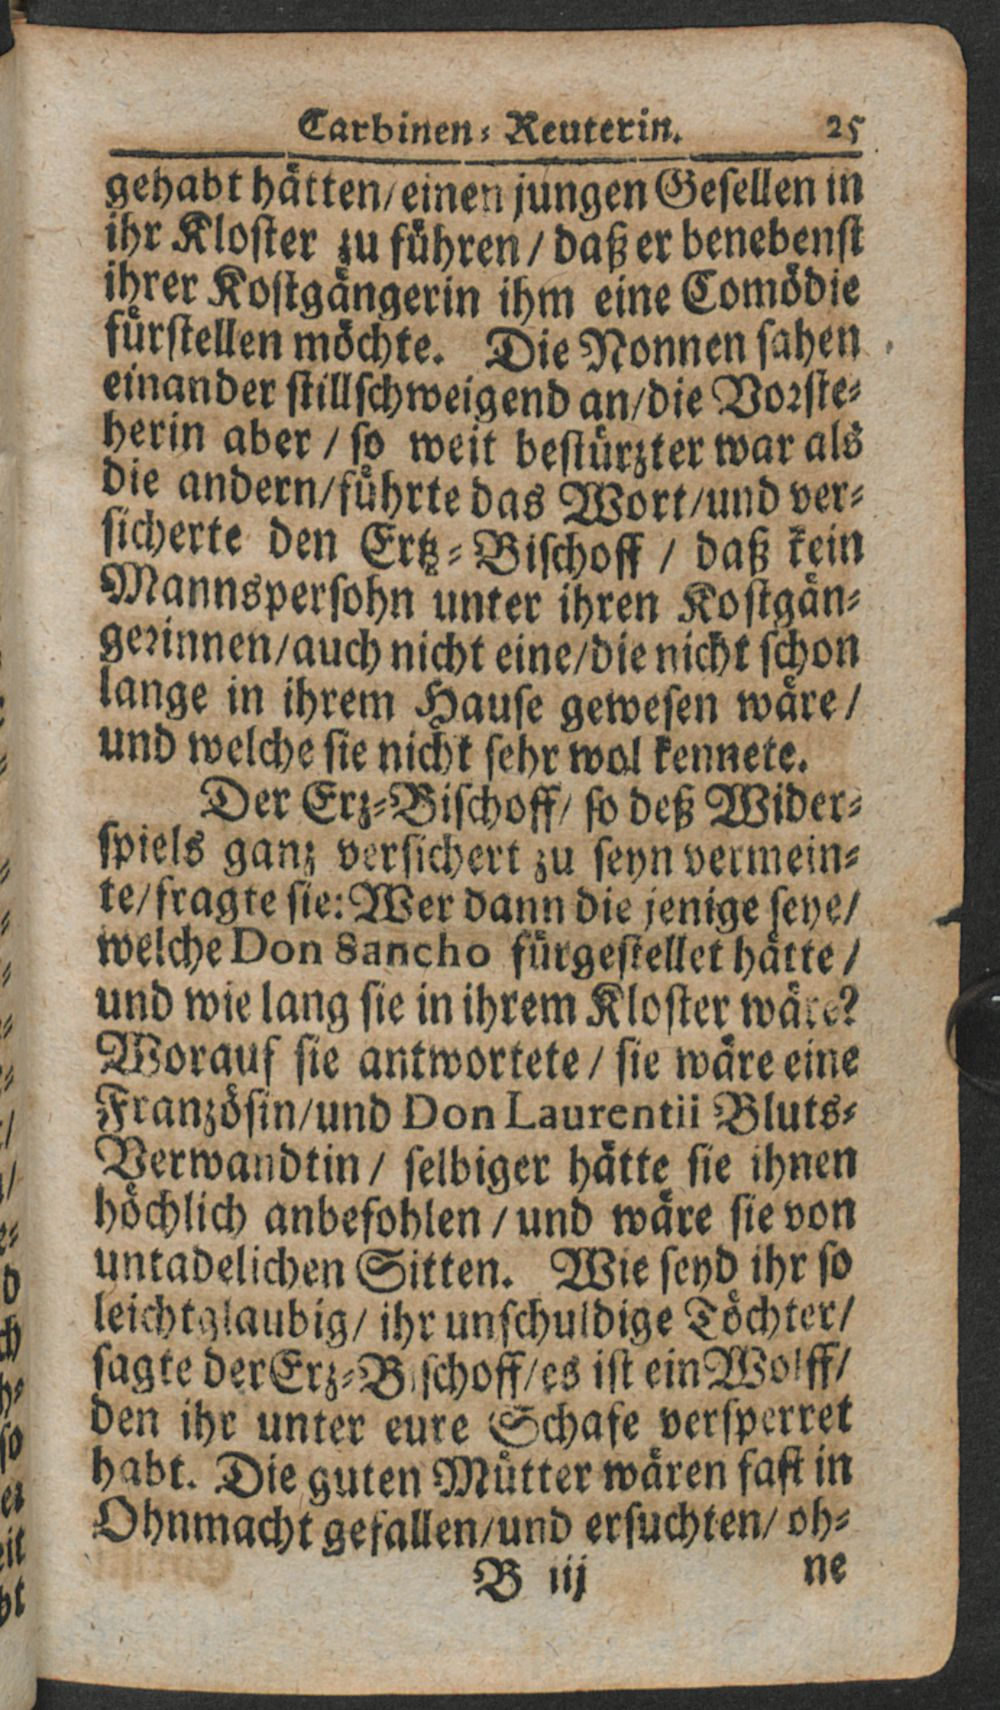 Carbinen-Reuterin. 25
gehabt hätten/einen jungen Gesellen in
ihr Kloster zu führen/daß er benebenst
ihrer Kostgängerin ihm eine Comödie
fürstellen möchte. Die Nonnen sahen
einander stillschweigend an/die Vorste-
herin aber/so weit bestürzter war als
die andern/führte das Wort/und ver-
sicherte den Ertz-Bischoff/daß kein
Mannspersohn unter ihren Kostgän-
gerinnen/auch nicht eine/die nicht schon
lange in ihrem Hause gewesen wäre/
und welche sie nicht sehr wol kennete.
Der Erz-Bischoff/so deß Wider-
spiels ganz versichert zu seyn vermein-
te/fragte sie: Wer dann die jenige seye/
welche Don Sancho fürgestellet hätte/
und wie lang sie in ihrem Kloster wäre?
Worauf sie antwortete/sie wäre eine
Französin/und Don Laurentii Bluts-
Verwandtin/selbiger hätte sie ihnen
höchlich anbefohlen/und wäre sie von
untadelichen Sitten. Wie seyd ihr so
leichtglaubig/ihr unschuldige Töchter/
sagte der Erz-Bischoff/es ist ein Wolff/
den ihr unter eure Schafe versperret
habt. Die guten Mütter wären fast in
Ohnmacht gefallen/und ersuchten/oh-
B iij ne